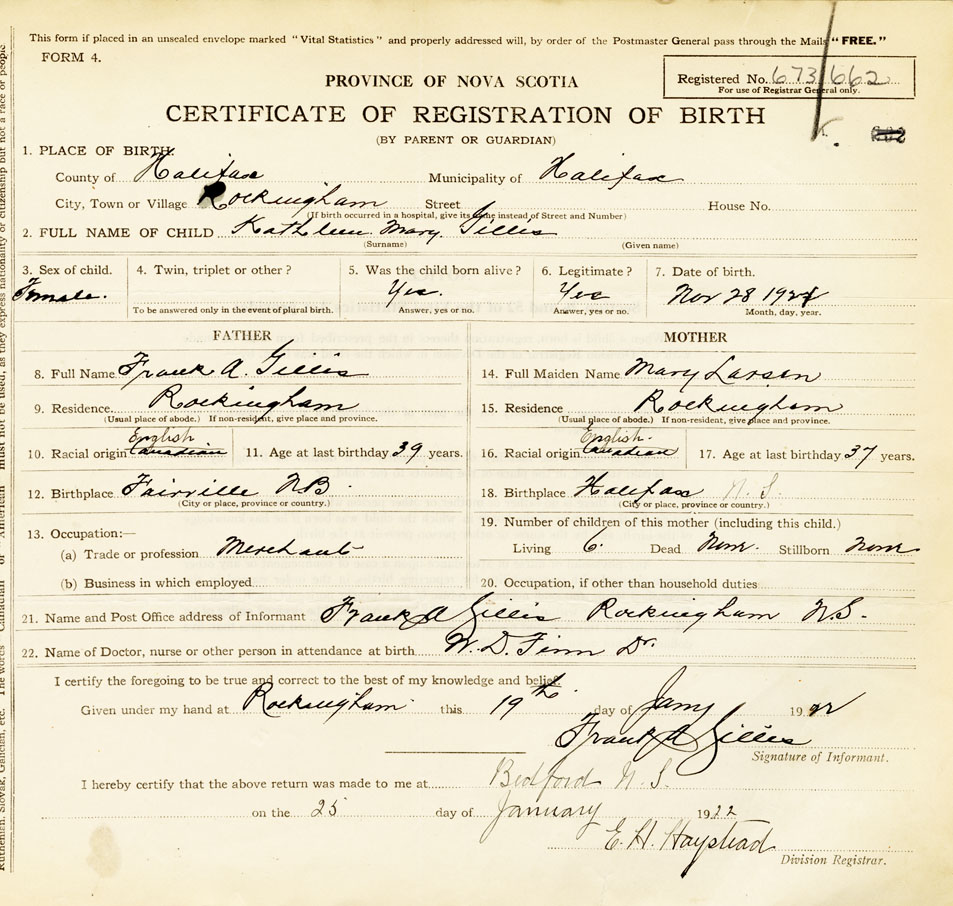 This form if placed in an unsealed envelope marked "Vital Statistics" and properly addressed will, by order of the Postmaster General pass through the Mails "FREE."
FORM 4.
PROVINCE OF NOVA SCOTIA
Registered No. 673/662
For use of Registrar General only.
CERTIFICATE OF REGISTRATION OF BIRTH
(BY PARENT OR GUARDIAN)
1. PLACE OF BIRTH:
County of Halifax Municipality of Halifax
City, Town or Village Rockingham Street House No.
(If birth occurred in a hospital, give its name instead of Street and Number)
2. FULL NAME OF CHILD Kathleen Mary Gillis
(Surname) (Given name)
3. Sex of child. 4. Twin, triplet or other? 5. Was the child born alive? 6. Legitimate? 7. Date of birth.
Female. Yes. Yes Nov 28 1921
To be answered only in the event of plural birth. Answer, yes or no. Answer, yes or no. Month, day, year.
FATHER
8. Full Name Frank A. Gillis
9. Residence Rockingham
(Usual place of abode.) If non-resident, give place and province.
English
10. Racial origin Canadian 11. Age at last birthday 39 years.
12. Birthplace Fairville NB.
(City or place, province or country.)
13. Occupation:—
(a) Trade or profession Merchant
(b) Business in which employed
MOTHER
14. Full Maiden Name Mary Larsen
15. Residence Rockingham
(Usual place of abode.) If non-resident, give place and province.
English.
16. Racial origin Canadian 17. Age at last birthday 37 years.
18. Birthplace Halifax N. S.
(City or place, province or country.)
19. Number of children of this mother (including this child.)
Living 6. Dead None. Stillborn None
20. Occupation, if other than household duties
21. Name and Post Office address of Informant Frank A Gillis Rockingham N.S.
22. Name of Doctor, nurse or other person in attendance at birth W. D. Finn Dr.
I certify the foregoing to be true and correct to the best of my knowledge and belief.
Given under my hand at Rockingham this 19th day of Jany 1922
Frank A Gillis
Signature of Informant.
I hereby certify that the above return was made to me at Bedford N. S.
on the 25 day of January 1922
E. H. Haystead
Division Registrar.